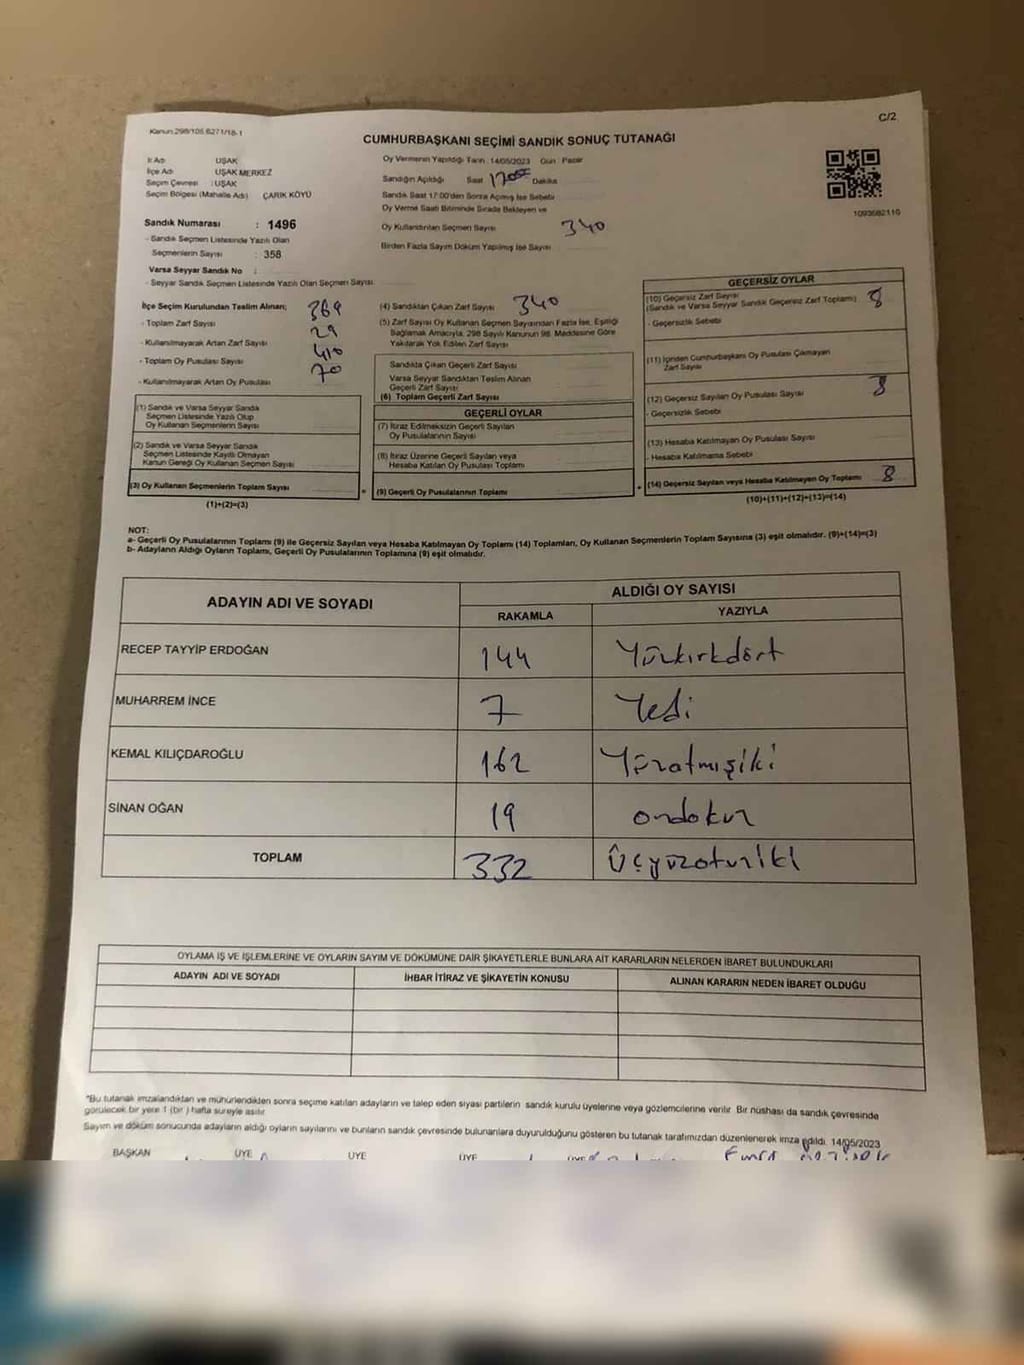 Kanun.298/105.6271/18-1
C/2
CUMHURBAŞKANI SEÇİMİ SANDIK SONUÇ TUTANAĞI
İl Adı UŞAK
İlçe Adı UŞAK MERKEZ
Seçim Çevresi : UŞAK
Seçim Bölgesi (Mahalle Adı) ÇARIK KÖYÜ
Oy Vermenin Yapıldığı Tarih 14/05/2023 Gün Pazar
Sandığın Açıldığı Saat 17:05 Dakika
Sandık Saat 17:00'den Sonra Açmış İse Sebebi
Oy Verme Saati Bitiminde Sırada Bekleyen ve
Oy Kullandırılan Seçmen Sayısı 340
Birden Fazla Sayım Döküm Yapılmış İse Sayısı
1093682110
Sandık Numarası : 1496
- Sandık Seçmen Listesinde Yazılı Olan
Seçmenlerin Sayısı : 358
Varsa Seyyar Sandık No :
- Seyyar Sandık Seçmen Listesinde Yazılı Olan Seçmen Sayısı
İlçe Seçim Kurulundan Teslim Alınan; 369
- Toplam Zarf Sayısı 29
- Kullanılmayarak Artan Zarf Sayısı 410
- Toplam Oy Pusulası Sayısı 70
- Kullanılmayarak Artan Oy Pusulası
(1) Sandık ve Varsa Seyyar Sandık
Seçmen Listesinde Yazılı Olup
Oy Kullanan Seçmenlerin Sayısı
(2) Sandık ve Varsa Seyyar Sandık
Seçmen Listesinde Kayıtlı Olmayan
Kanun Gereği Oy Kullanan Seçmen Sayısı
(3) Oy Kullanan Seçmenlerin Toplam Sayısı
(1)+(2)=(3)
(4) Sandıktan Çıkan Zarf Sayısı 340
(5) Zarf Sayısı Oy Kullanan Seçmen Sayısından Fazla İse, Eşitliği
Sağlamak Amacıyla, 298 Sayılı Kanunun 98. Maddesine Göre
Yakılarak Yok Edilen Zarf Sayısı
Sandıkta Çıkan Geçerli Zarf Sayısı
Varsa Seyyar Sandıktan Teslim Alınan
Geçerli Zarf Sayısı
(6) Toplam Geçerli Zarf Sayısı
GEÇERLİ OYLAR
(7) İtiraz Edilmeksizin Geçerli Sayılan
Oy Pusulalarının Sayısı
(8) İtiraz Üzerine Geçerli Sayılan veya
Hesaba Katılan Oy Pusulası Toplamı
(9) Geçerli Oy Pusulalarının Toplamı
GEÇERSİZ OYLAR
(10) Geçersiz Zarf Sayısı
(Sandık ve Varsa Seyyar Sandık Geçersiz Zarf Toplamı) 8
- Geçersizlik Sebebi
(11) İçinden Cumhurbaşkanı Oy Pusulası Çıkmayan
Zarf Sayısı
(12) Geçersiz Sayılan Oy Pusulası Sayısı 8
- Geçersizlik Sebebi
(13) Hesaba Katılmayan Oy Pusulası Sayısı
- Hesaba Katılmama Sebebi
(14) Geçersiz Sayılan veya Hesaba Katılmayan Oy Toplamı 8
(10)+(11)+(12)+(13)=(14)
NOT:
a- Geçerli Oy Pusulalarının Toplamı (9) ile Geçersiz Sayılan veya Hesaba Katılmayan Oy Toplamı (14) Toplamları, Oy Kullanan Seçmenlerin Toplam Sayısına (3) eşit olmalıdır. (9)+(14)=(3)
b- Adayların Aldığı Oyların Toplamı, Geçerli Oy Pusulalarının Toplamına (9) eşit olmalıdır.
ADAYIN ADI VE SOYADI ALDIĞI OY SAYISI
RAKAMLA YAZIYLA
RECEP TAYYİP ERDOĞAN 144 Yüzkırkdört
MUHARREM İNCE 7 Yedi
KEMAL KILIÇDAROĞLU 162 Yüzatmışiki
SİNAN OĞAN 19 ondokuz
TOPLAM 332 Üçyüzotuziki
OYLAMA İŞ VE İŞLEMLERİNE VE OYLARIN SAYIM VE DÖKÜMÜNE DAİR ŞİKAYETLERLE BUNLARA AİT KARARLARIN NELERDEN İBARET BULUNDUKLARI
ADAYIN ADI VE SOYADI İHBAR İTİRAZ VE ŞİKAYETİN KONUSU ALINAN KARARIN NEDEN İBARET OLDUĞU
"Bu tutanak imzalandıktan ve mühürlendikten sonra seçime katılan adayların ve talep eden siyasi partilerin sandık kurulu üyelerine veya gözlemcilerine verilir. Bir nüshası da sandık çevresinde
görülecek bir yere 1 (bir) hafta süreyle asılır.
Sayım ve döküm sonucunda adayların aldığı oyların sayılarını ve bunların sandık çevresinde bulunanlara duyurulduğunu gösteren bu tutanak tarafımızdan düzenlenerek imza edildi. 14/05/2023
BAŞKAN ÜYE ÜYE ÜYE ÜYE